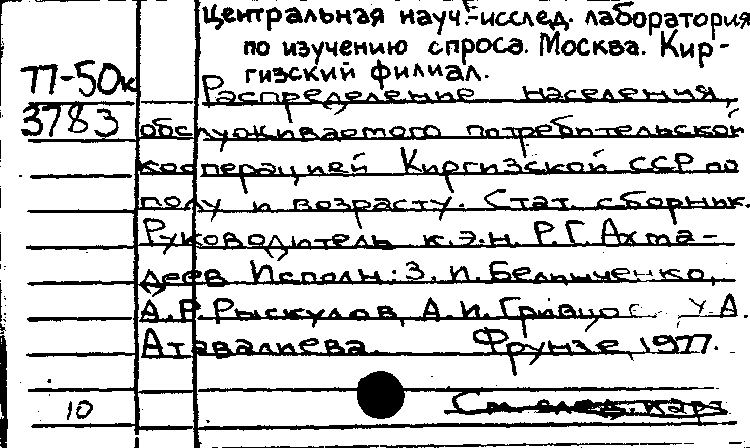 Центральная науч.-исслед. лаборатория
по изучению спроса. Москва. Кир-
гизский филиал.
77-50к
3783
Распределение населения,
обслуживаемого потребительской
кооперацией Киргизской ССР по
полу и возрасту. Стат. сборник.
Руководитель к.э.н. Р.Г. Ахма-
деев Исполн: З.И. Белинченко,
А.Р. Рыскулов, А.И. У.А.
Атавалиева. Фрунзе, 1977.
10
См. след. карт